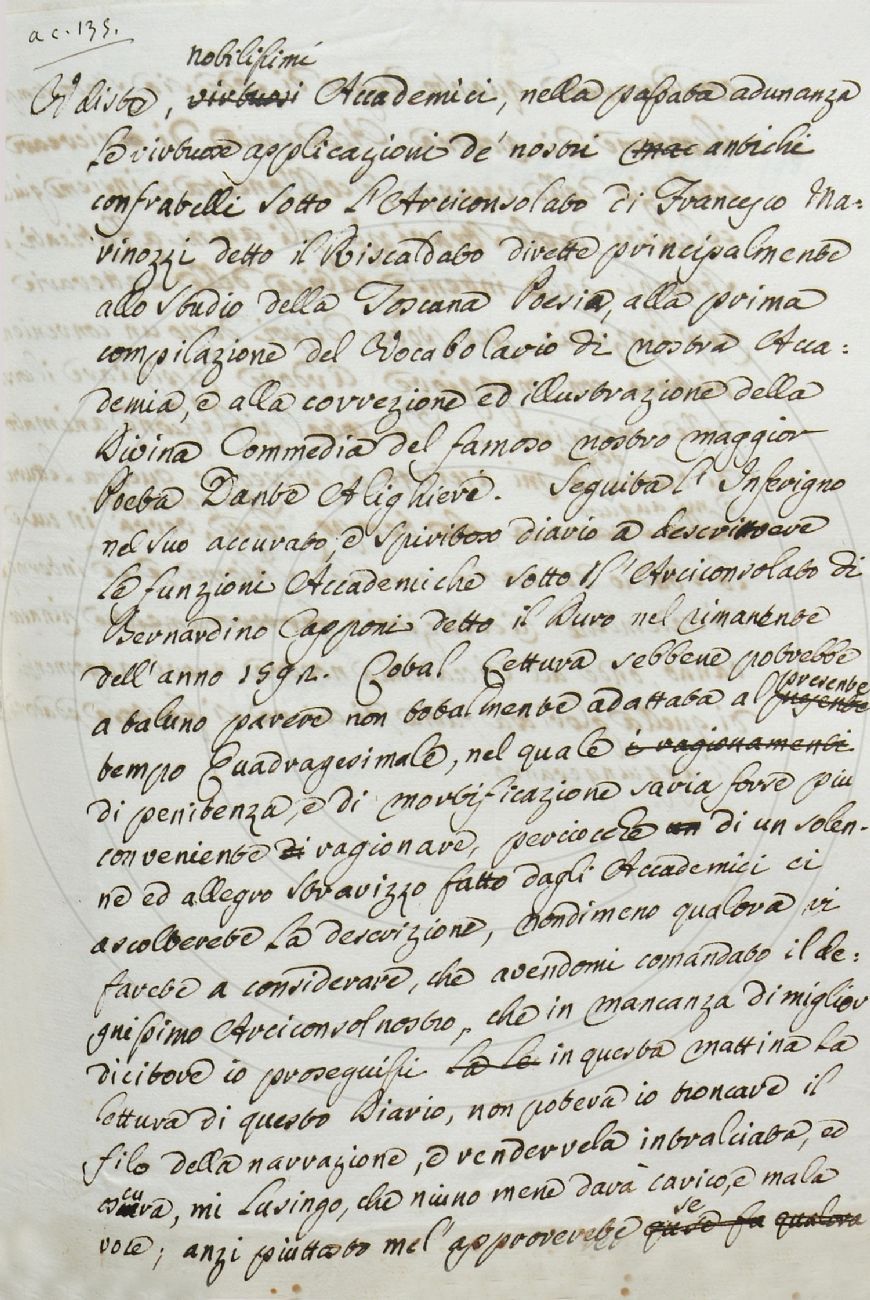 a c. 135.
nobilissimi
Udiste, virtuosi Accademici, nella passata adunanza
le virtuose applicazioni de' nostri antichi
confratelli sotto l'Arciconsolato di Francesco Ma-
rinozzi detto il Riscaldato dirette principalmente
allo studio della Toscana Poesia, alla prima
compilazione del Vocabolario di nostra Acca-
demia, e alla correzione ed illustrazione della
Divina Commedia del famoso nostro maggior
Poeta Dante Alighieri. Seguita l'Inferigno
nel suo accurato, e spiritoso diario a descrivere
le funzioni Accademiche sotto l'Arciconsolato di
Bernardino Capponi detto il Duro nel rimanente
dell'anno 1592. Cotal lettura sebbene potrebbe
a taluno parere non totalmente adattata al presente
tempo Quadragesimale, nel quale i ragionamenti
di penitenza, e di mortificazione saria forse più
conveniente di ragionare, perciocchè un di un solen-
ne ed allegro stravizzo fatto dagli Accademici ci
ascolterete la descrizione, nondimeno qualora vi
farete a considerare, che avendomi comandato il de-
gnissimo Arciconsol nostro, che in mancanza di miglior
dicitore io proseguissi la le in questa mattina la
lettura di questo Diario, non poteva io troncare il
filo della narrazione, e rendervela intralciata, ed
oscura, mi lusingo, che niuno mene darà carico, e mala
voce; anzi piuttosto mel' approverete se fa qualora